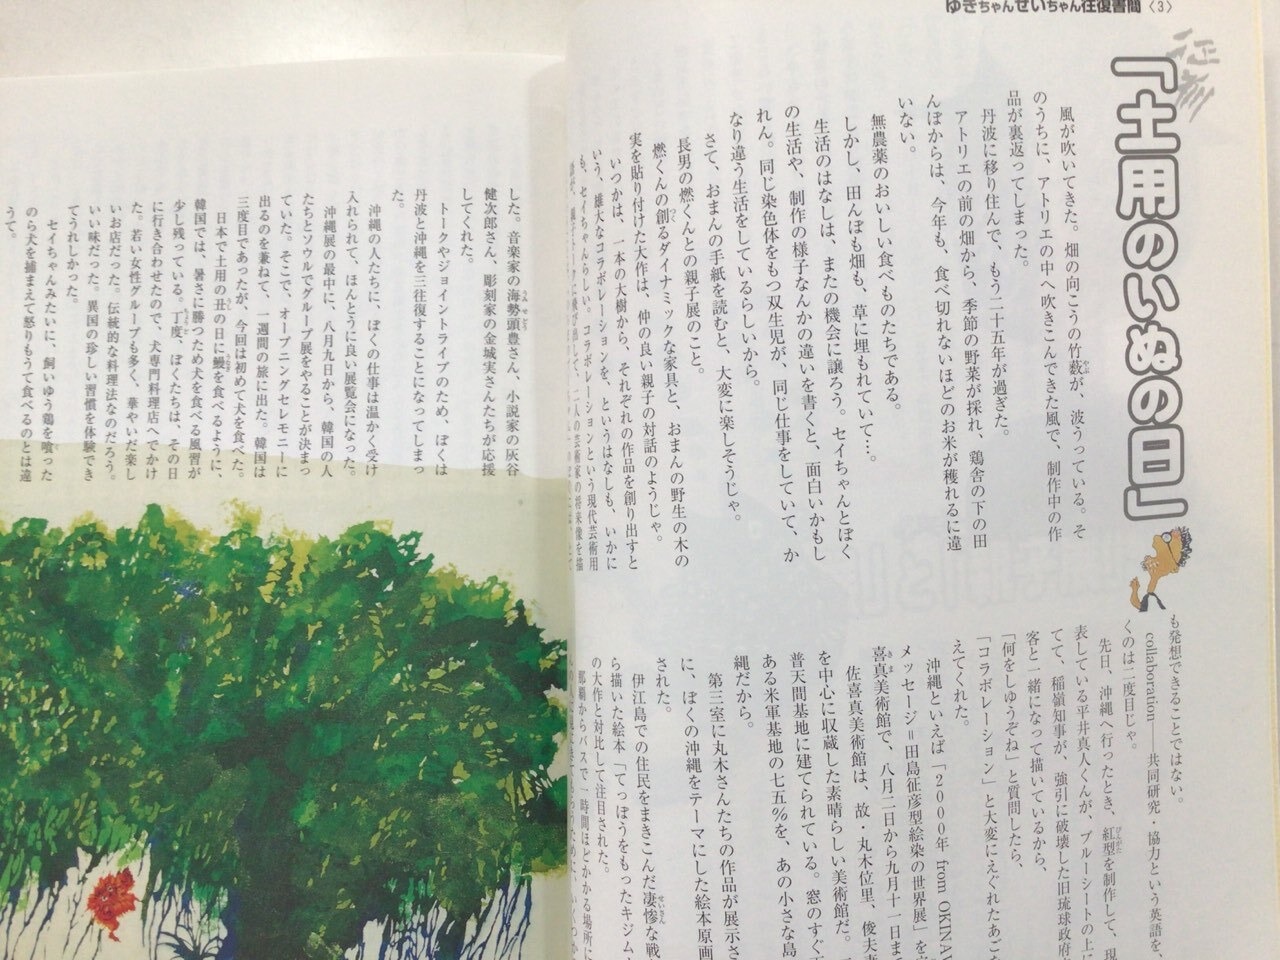 ゆきちゃんせいちゃん往復書簡〈3〉
「土用のいぬの日」
風が吹いてきた。畑の向こうの竹藪が、波うっている。そ
のうちに、アトリエの中へ吹きこんできた風で、制作中の作
品が裏返ってしまった。
丹波に移り住んで、もう二十五年が過ぎた。
アトリエの前の畑から、季節の野菜が採れ、鶏舎の下の田
んぼからは、今年も、食べ切れないほどのお米が穫れるに違
いない。
無農薬のおいしい食べものたちである。
しかし、田んぼも畑も、草に埋もれていて…。
生活のはなしは、またの機会に譲ろう。セイちゃんとぼく
の生活や、制作の様子なんかの違いを書くと、面白いかもし
れん。同じ染色体をもつ双生児が、同じ仕事をしていて、か
なり違う生活をしているらしいから。
さて、おまんの手紙を読むと、大変に楽しそうじゃ。
長男の燃くんとの親子展のこと。
燃くんの創るダイナミックな家具と、おまんの野生の木の
実を貼り付けた大作は、仲の良い親子の対話のようじゃ。
いつかは、一本の大樹から、それぞれの作品を創り出すと
いう、雄大なコラボレーションを、というはなしも、いかに
も、セイちゃんらしい。コラボレーションという現代芸術用
も発想できることではない。
collaboration――共同研究・協力という英語を、
くのは二度目じゃ。
先日、沖縄へ行ったとき、紅型を制作して、現
表している平井真人くんが、ブルーシートの上に
てて、稲嶺知事が、強引に破壊した旧琉球政府
客と一緒になって描いているから、
「何をしゆうぞね」と質問したら、
「コラボレーション」と大変にえぐれたあご
えてくれた。
沖縄といえば「2000年 from OKINA
メッセージ=田島征彦型絵染の世界展」を
喜真美術館で、八月二日から九月十一日ま
佐喜真美術館は、故・丸木位里、俊夫妻
を中心に収蔵した素晴らしい美術館だ。
普天間基地に建てられている。窓のすぐ
ある米軍基地の七五%を、あの小さな島
縄だから。
第三室に丸木さんたちの作品が展示さ
に、ぼくの沖縄をテーマにした絵本原画
された。
伊江島での住民をまきこんだ凄惨な戦
ら描いた絵本「てっぽうをもったキジム
の大作と対比して注目された。
那覇からバスで一時間ほどかかる場所に
した。音楽家の海勢頭豊さん、小説家の灰谷
健次郎さん、彫刻家の金城実さんたちが応援
してくれた。
トークやジョイントライブのため、ぼくは
丹波と沖縄を三往復することになってしまっ
た。
沖縄の人たちに、ぼくの仕事は温かく受け
入れられて、ほんとうに良い展覧会になった。
沖縄展の最中に、八月九日から、韓国の人
たちとソウルでグループ展をやることが決まっ
ていた。そこで、オープニングセレモニーに
出るのを兼ねて、一週間の旅に出た。韓国は
三度目であったが、今回は初めて犬を食べた。
日本で土用の丑の日に鰻を食べるように、
韓国では、暑さに勝つため犬を食べる風習が
少し残っている。丁度、ぼくたちは、その日
に行き合わせたので、犬専門料理店へでかけ
た。若い女性グループも多く、華やいだ楽し
いお店だった。伝統的な料理法なのだろう。
いい味だった。異国の珍しい習慣を体験でき
てうれしかった。
セイちゃんみたいに、飼いゆう鶏を喰った
のら犬を捕まえて怒りもうて食べるのとは違
うて。